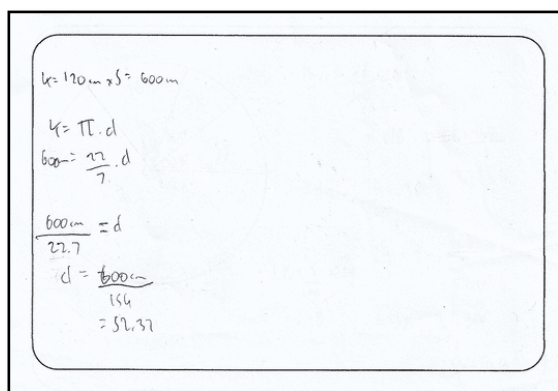 K = 120 cm x 5 = 600 cm
K = π . d
600 cm = 22/7 . d
600 cm / 22.7 = d
d = 600 cm / 154
= 52.32